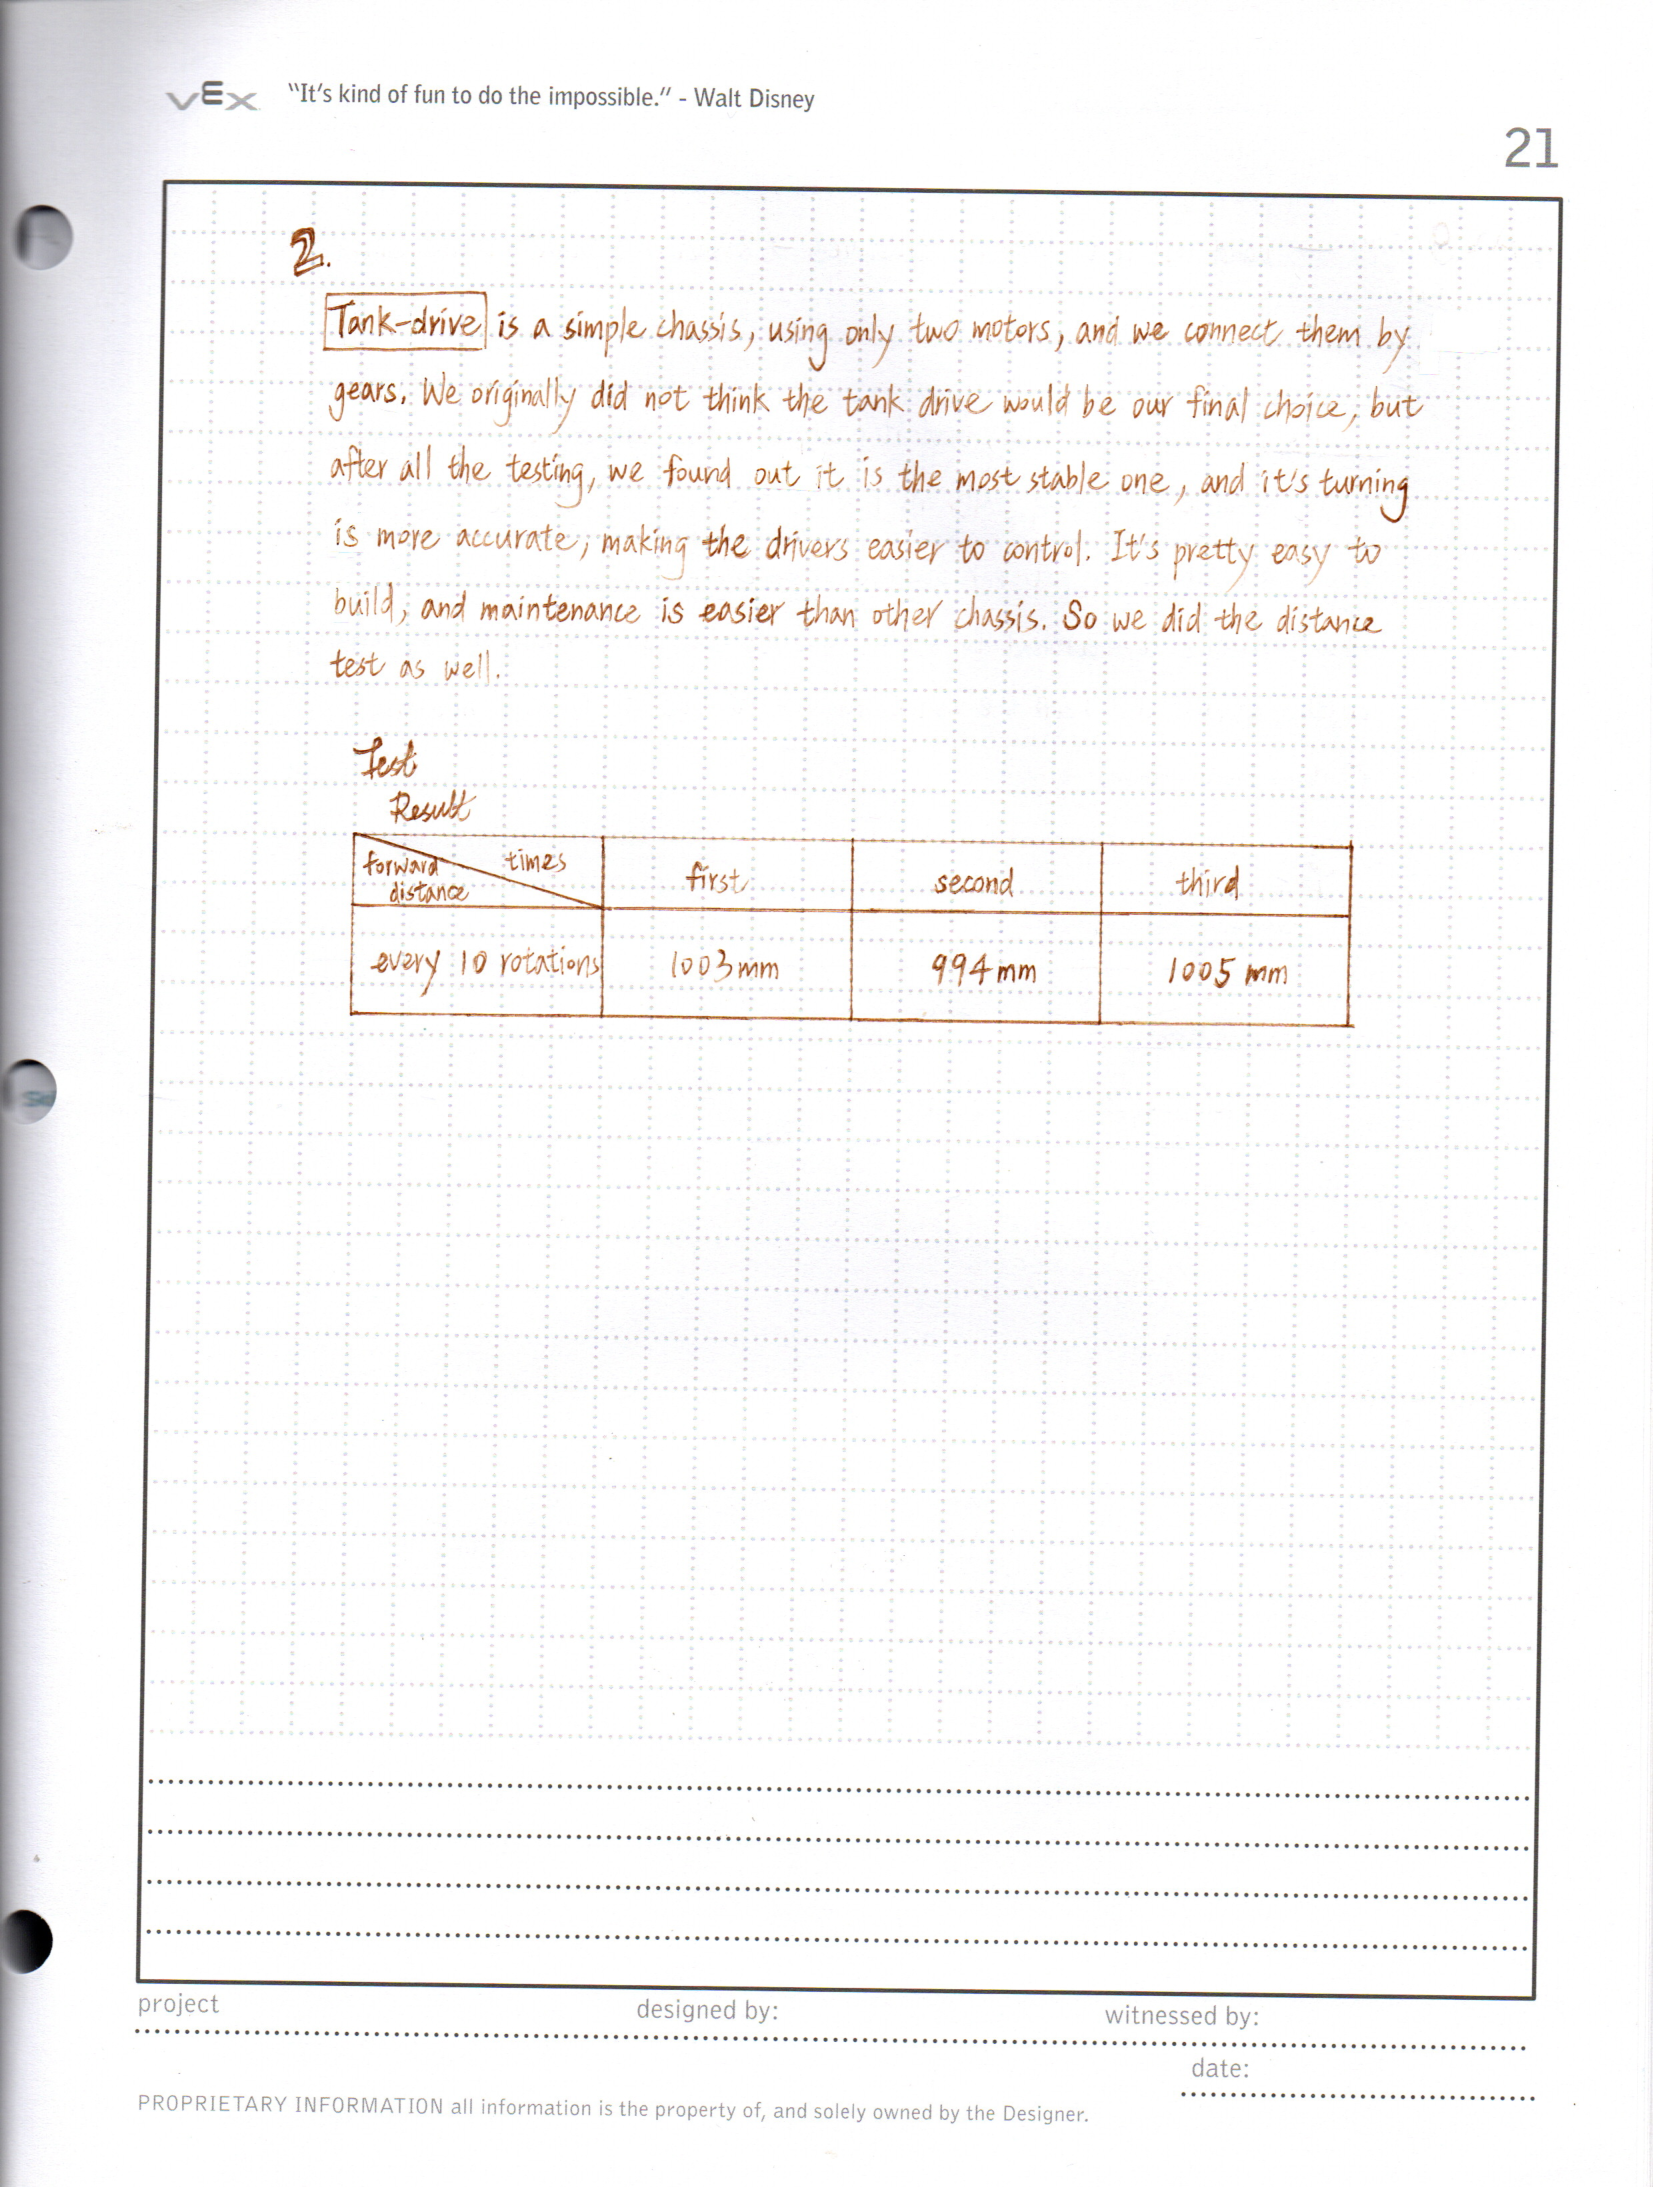 VEX "It's kind of fun to do the impossible." - Walt Disney
21
2.
Tank-drive is a simple chassis, using only two motors, and we connect them by
gears. We originally did not think the tank drive would be our final choice, but
after all the testing, we found out it is the most stable one, and it's turning
is more accurate, making the drivers easier to control. It's pretty easy to
build, and maintenance is easier than other chassis. So we did the distance
test as well.
Test
Result
forward distance times first second third
every 10 rotations 1003mm 994mm 1005 mm
project designed by: witnessed by:
date:
PROPRIETARY INFORMATION all information is the property of, and solely owned by the Designer.